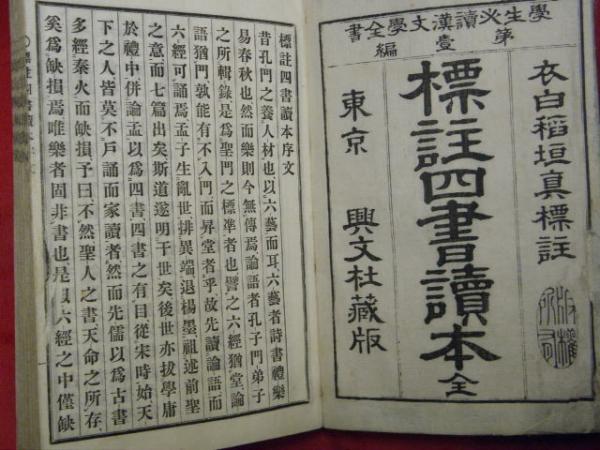 學生必讀漢文學全書
第壹編
衣白稻垣真標註
標註四書讀本全
東京 興文社藏版
版權所有
標註四書讀本序文
昔孔門之養人材也以六藝而耳六藝者詩書禮樂
易春秋也然而樂則今無傳焉論語者孔子門弟子
之所輯錄是爲聖門之標準者也譬之六經猶堂論
語猶門孰能有不入門而昇堂者乎故先讀論語而
六經可誦焉孟子生亂世排異端退楊墨祖述前聖
之意而七篇出矣斯道遂明于世矣後世亦拔學庸
於禮中併論孟以爲四書四書之有目從宋時始天
下之人皆莫不戶誦而家讀者然而先儒以爲古書
多經秦火而缺損予曰不然聖人之書天命之所存
奚爲缺損焉唯樂者固非書也是以六經之中僅缺